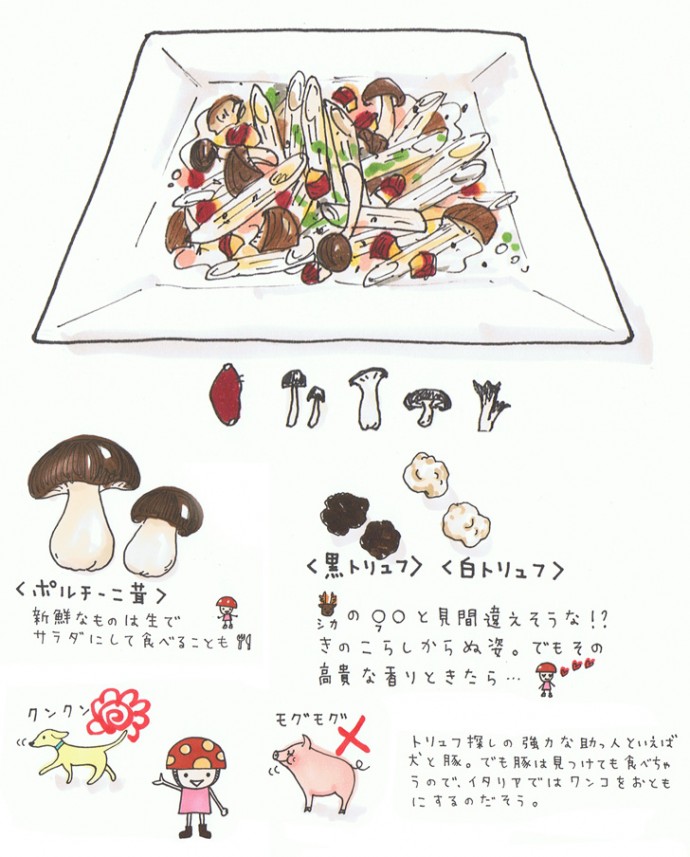 <ポルチーニ茸>
新鮮なものは生で
サラダにして食べることも
<黒トリュフ> <白トリュフ>
シカ の ○フ○ と見間違えそうな!?
きのこらしからぬ姿。でもその
高貴な香りときたら…
クンクン
モグモグ
トリュフ探しの強力な助っ人といえば
犬と豚。でも豚は見つけても食べちゃ
うので、イタリアではワンコをおとも
にするのだそう。